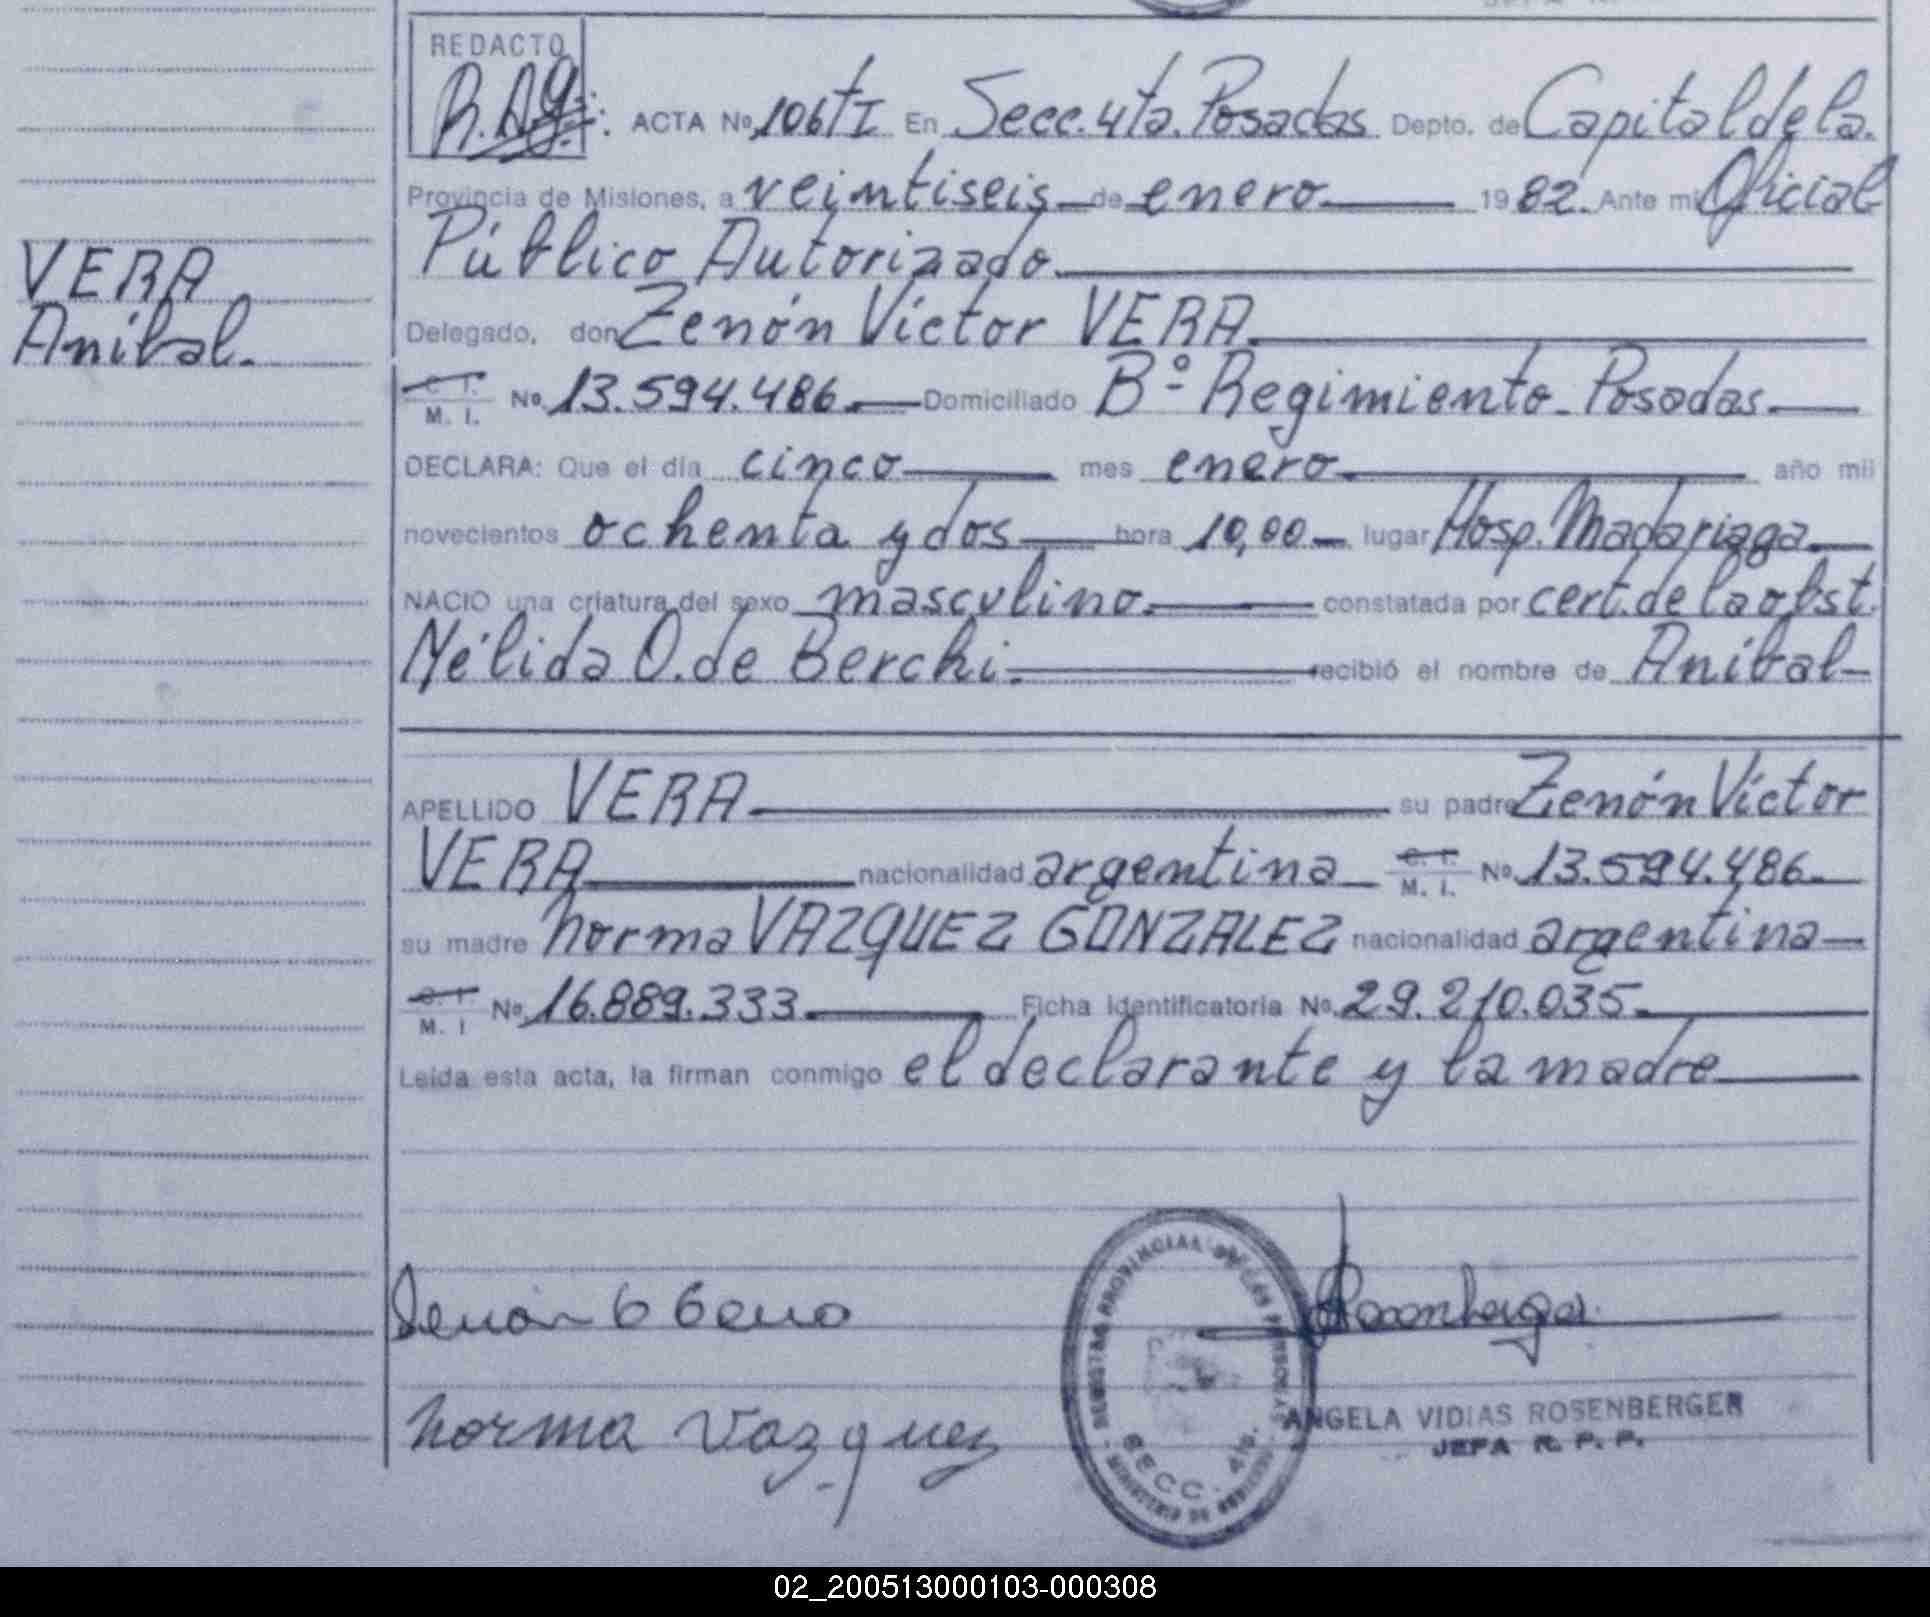 REDACTO
R.A.g.
ACTA No 106 tI En Secc. 4ta. Posadas Depto. de Capital de la
Provincia de Misiones, a veintiseis de enero 1982. Ante mi Oficial
Público Autorizado.
VERA
Aníbal.
Delegado, don Zenón Víctor VERA.
C. I.
M. I. No 13.594.486. Domiciliado Bº Regimiento - Posadas.
DECLARA: Que el día cinco mes enero año mil
novecientos ochenta y dos hora 10,00 lugar Hosp. Madariaga.
NACIO una criatura del sexo masculino. constatada por cert. de la obst.
Nélida O. de Berchi. recibió el nombre de Aníbal
APELLIDO VERA su padre Zenón Víctor
VERA nacionalidad argentina C. I. M. I. No 13.594.486.
su madre Norma VAZQUEZ GONZALEZ nacionalidad argentina
C. I.
M. I No 16.889.333. Ficha identificatoria No 29.210.035.
Leída esta acta, la firman conmigo el declarante y la madre
Norma Vazquez
REGISTRO PROVINCIAL DE LAS PERSONAS
SECC. 4ta.
MINISTERIO DE GOBIERNO
Rosenberger
ANGELA VIDIAS ROSENBERGER
JEFA R. P. P.
02_200513000103-000308